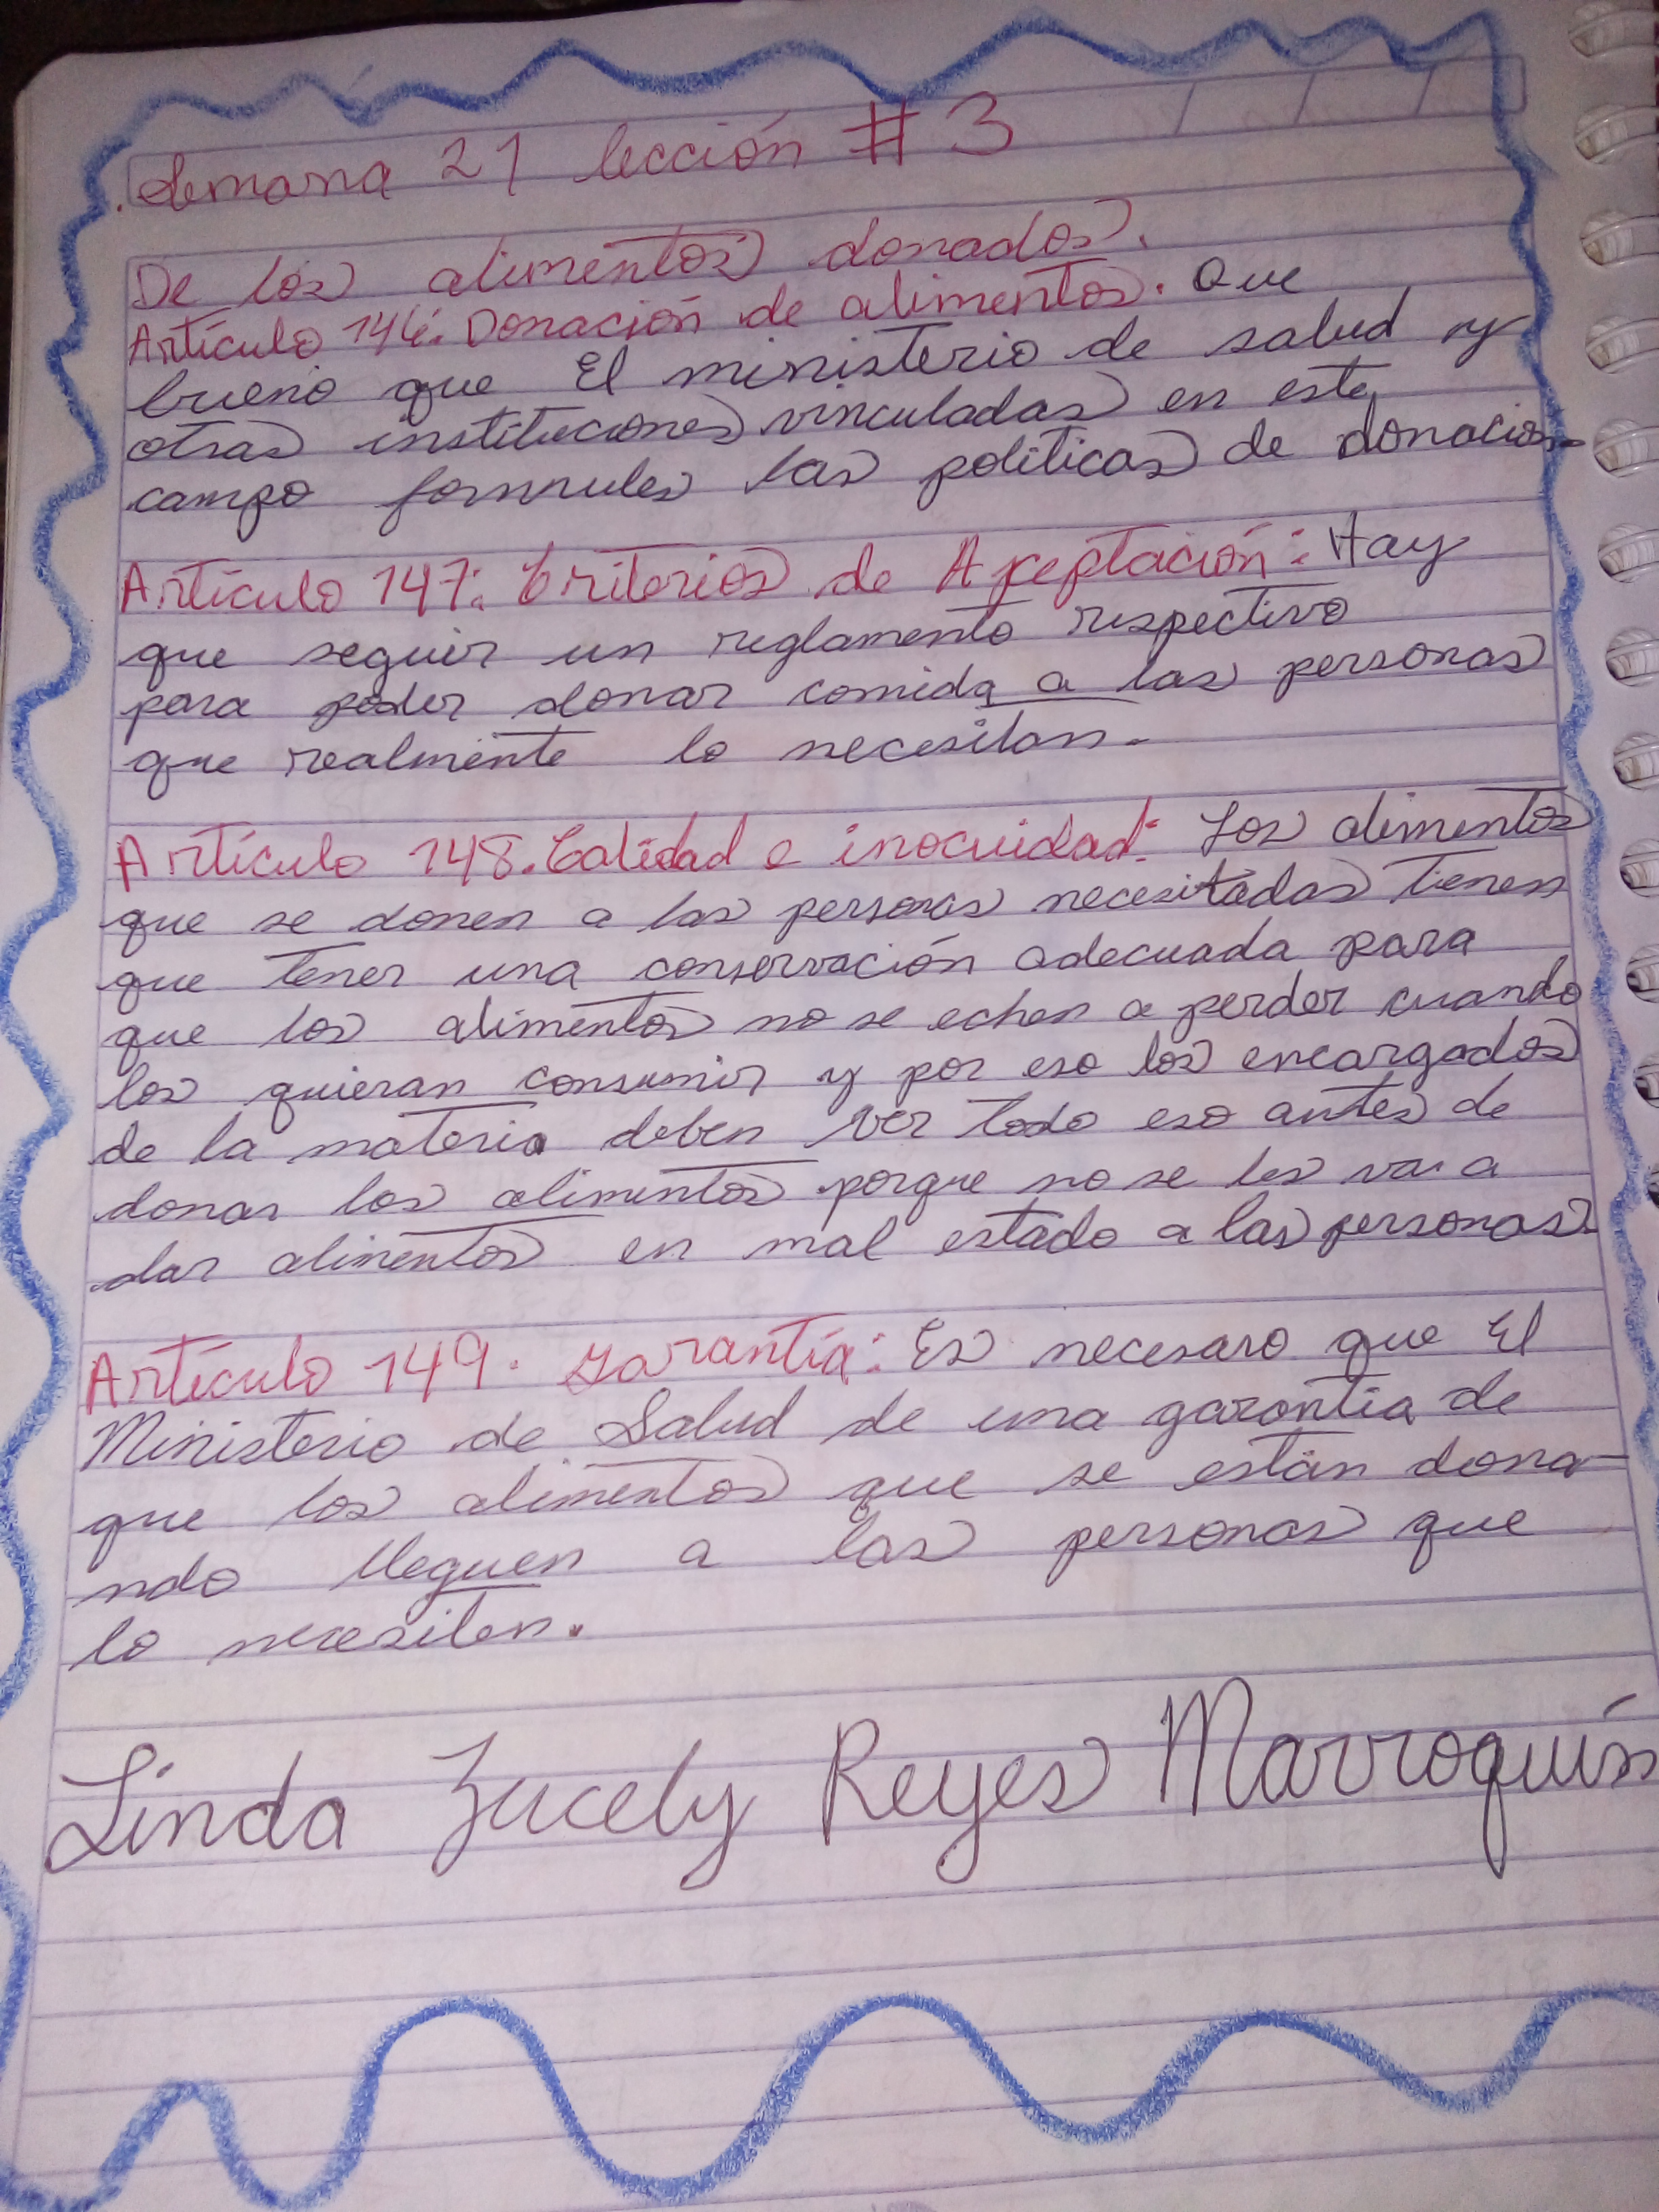 Semana 21 lección # 3
De los alimentos donados.
Artículo 146. Donación de alimentos. Que
bueno que El ministerio de salud y
otras instituciones vinculadas en este
campo formules las políticas de donación
Artículo 147: Criterios de Aceptación: Hay
que seguir un reglamento respectivo
para poder donar comida a las personas
que realmente lo necesitan.
Artículo 148. Calidad e inocuidad: Los alimentos
que se donen a las personas necesitadas tienen
que tener una conservación adecuada para
que los alimentos no se echen a perder cuando
los quieran consumir y por eso los encargados
de la materia deben ver todo eso antes de
donar los alimentos porque no se les va a
dar alimentos en mal estado a las personas.
Artículo 149. Garantía: Es necesaro que El
Ministerio de Salud de una garantía de
que los alimentos que se están dona-
ndo lleguen a las personas que
lo necesiten.
Linda Jucely Reyes Marroquín